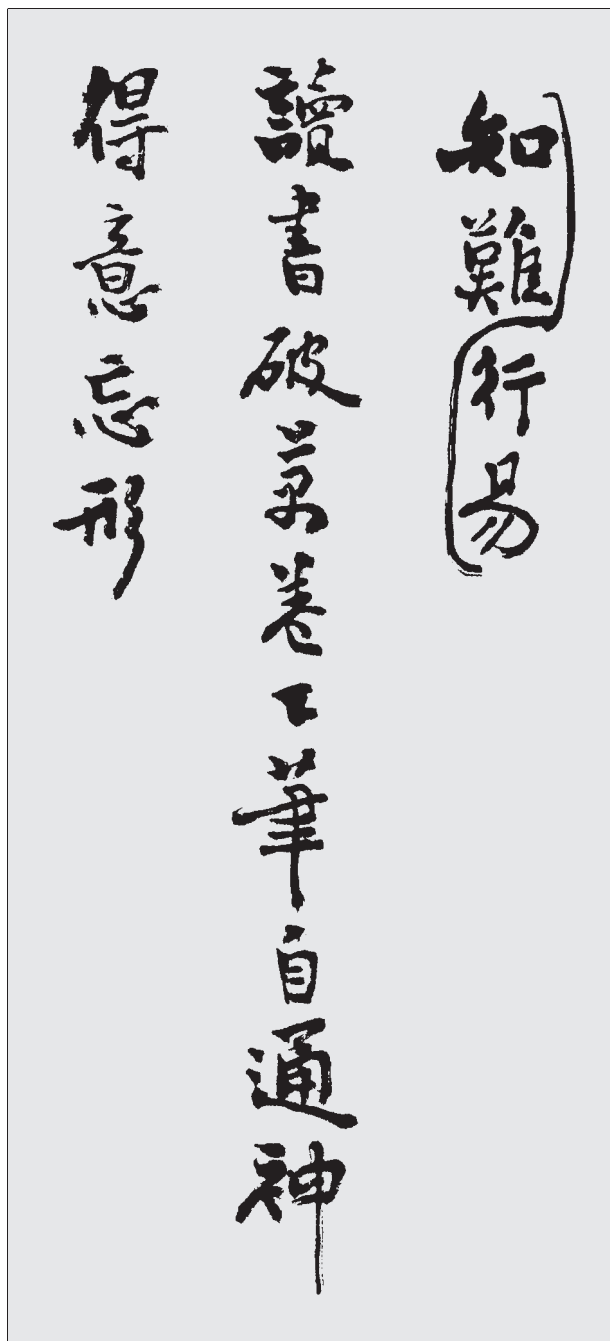 知難行易
讀書破萬卷下筆自通神
得意忘形